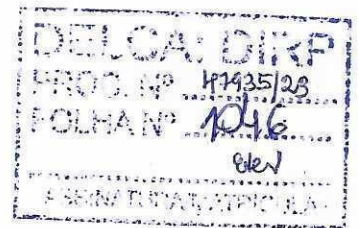 DELCA: DIRP
PROC. Nº 47935/23
FOLHA Nº 1046
ASSINATURA/MATRÍCULA